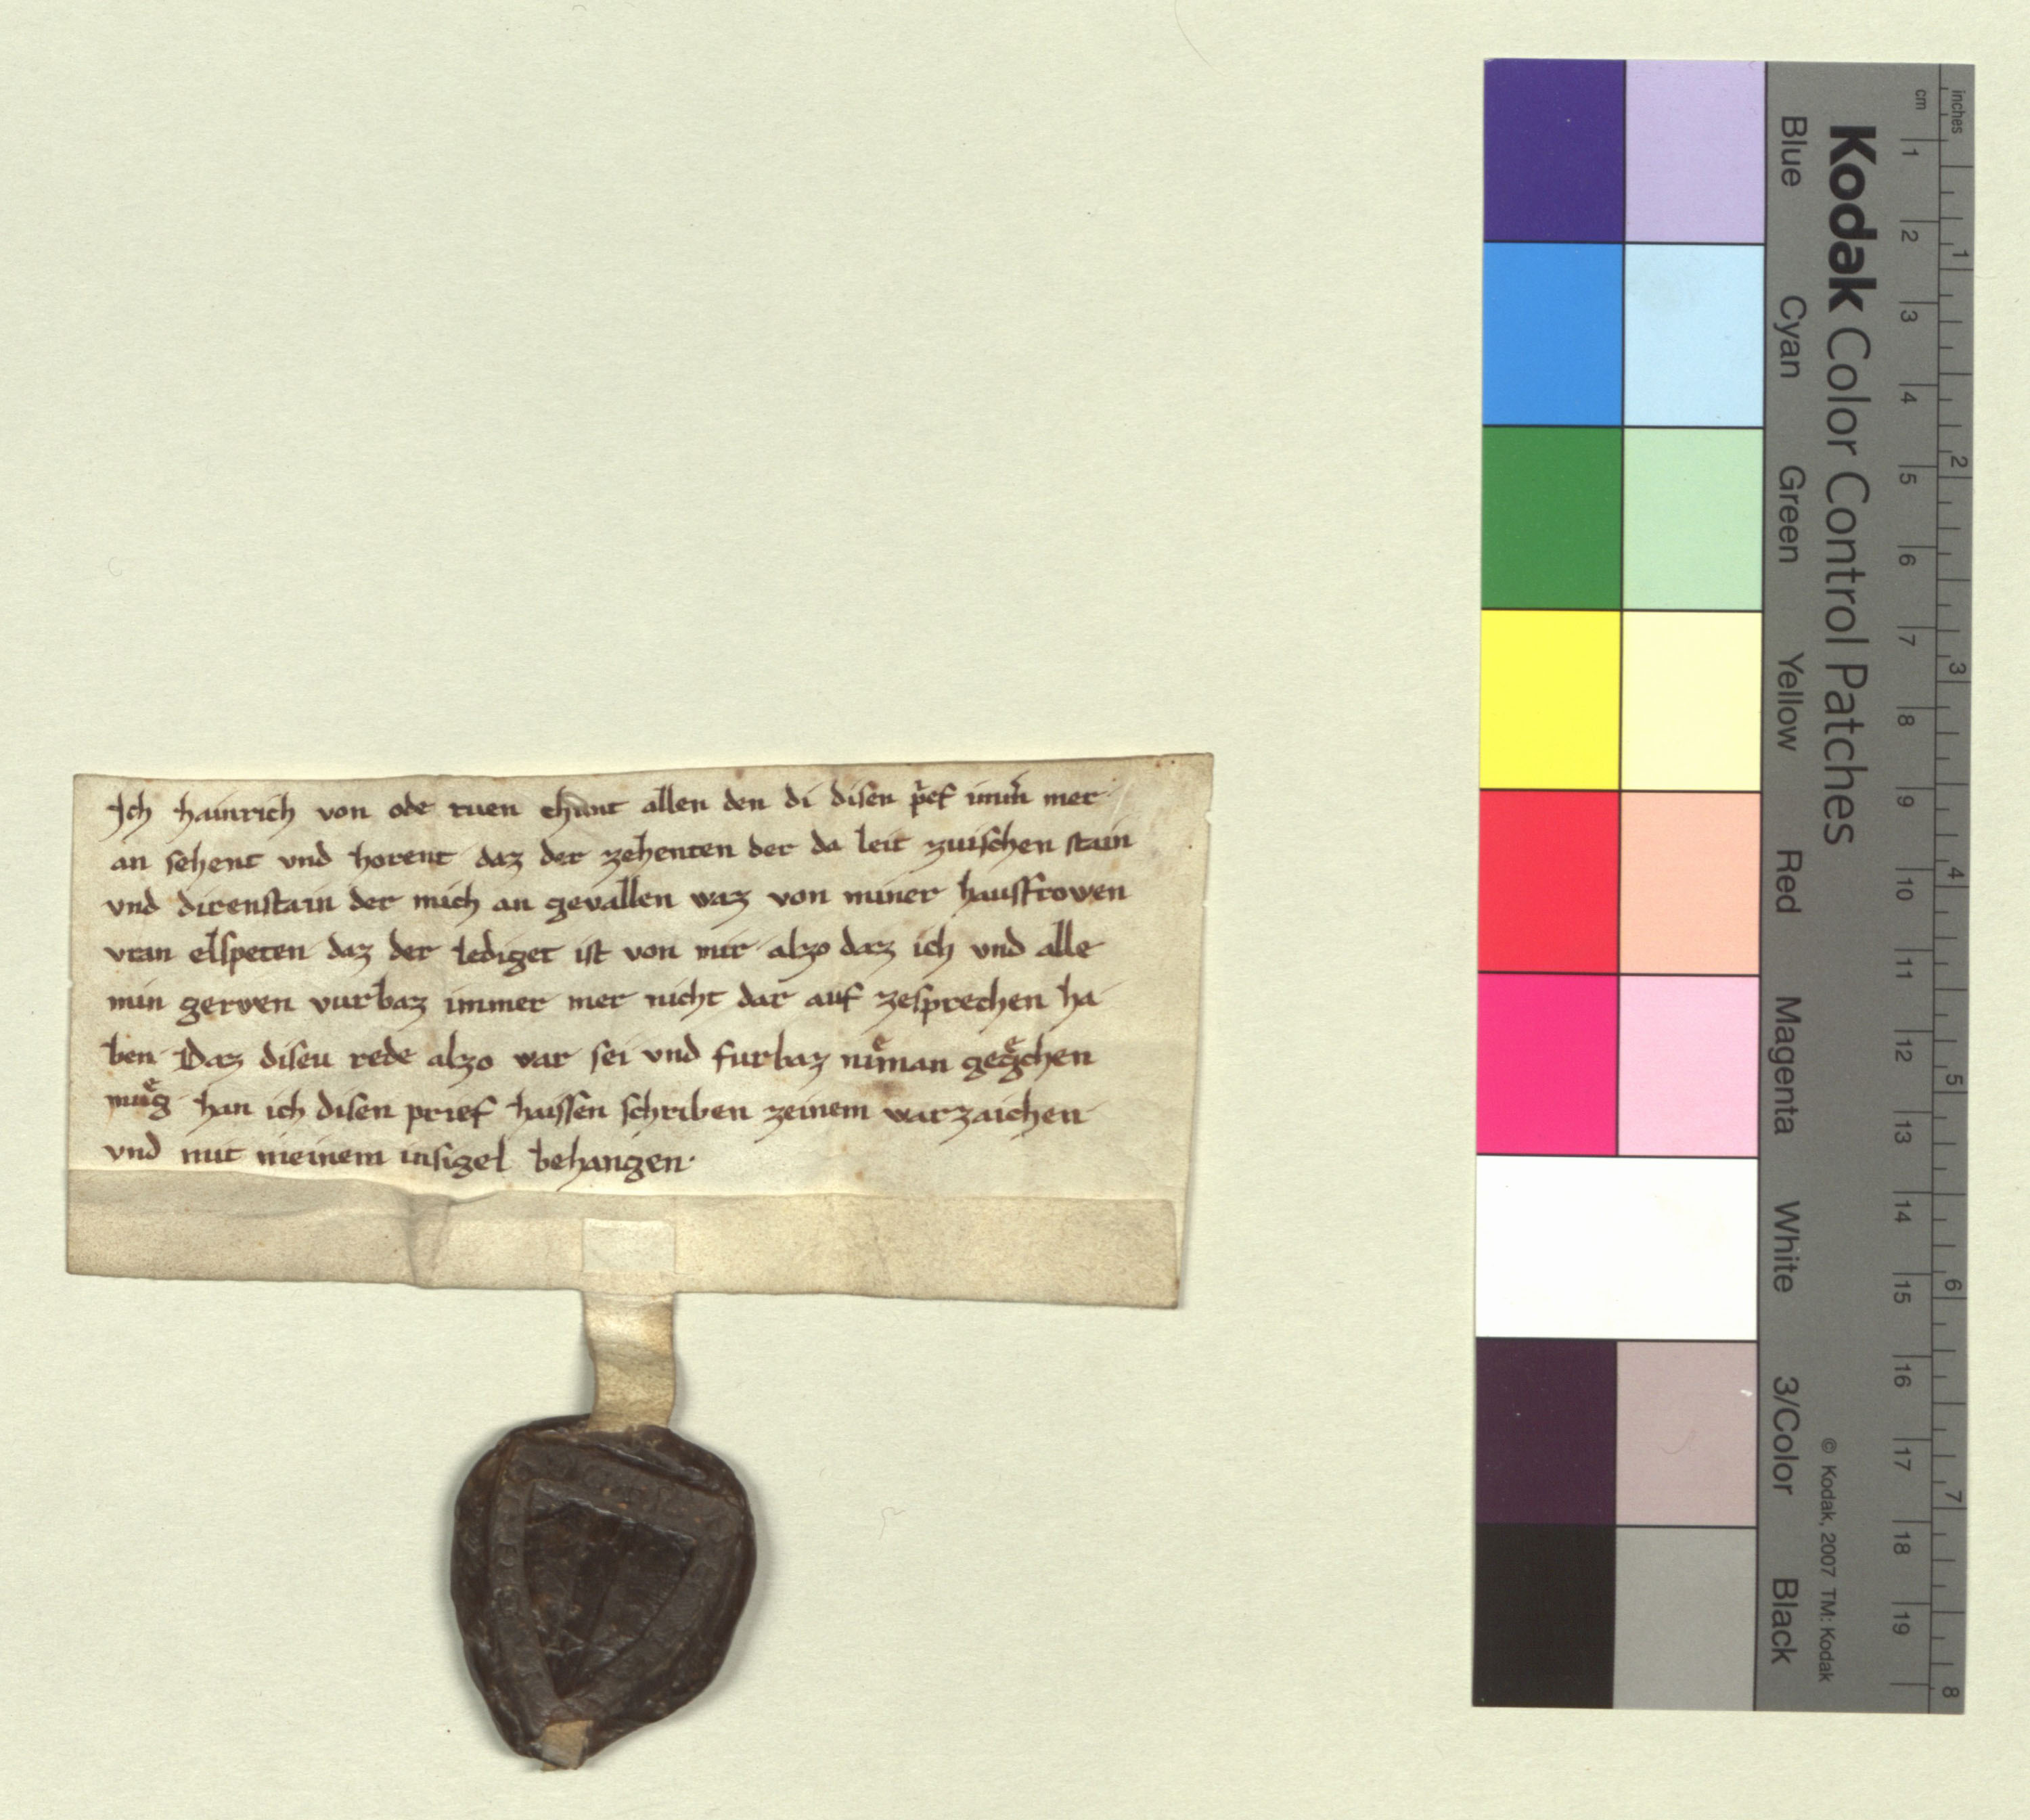 Ich hainrich von ode tuen chunt allen den di disen p̄ef imm̄ mer
an sehent vnd horent daz der zehenten der da leit zuischen stain
vnd direnstain der mich an gevallen waz von miner hausfrowen
vran elspeten daz der lediget ist von mir alzo daz ich vnd alle
min gerven vurbaz immer mer nicht dar auf zesprechen ha
ben Daz diseu rede alzo war sei vnd furbaz niͤman
muͤg han ich disen prief haissen schriben zeinem warzaichen
vnd mit meinem insigel behangen·
Kodak Color Control Patches
Blue Cyan Green Yellow Red Magenta White 3/Color Black
© Kodak, 2007 TM: Kodak
cm 1 2 3 4 5 6 7 8 9 10 11 12 13 14 15 16 17 18 19
inches 1 2 3 4 5 6 7 8